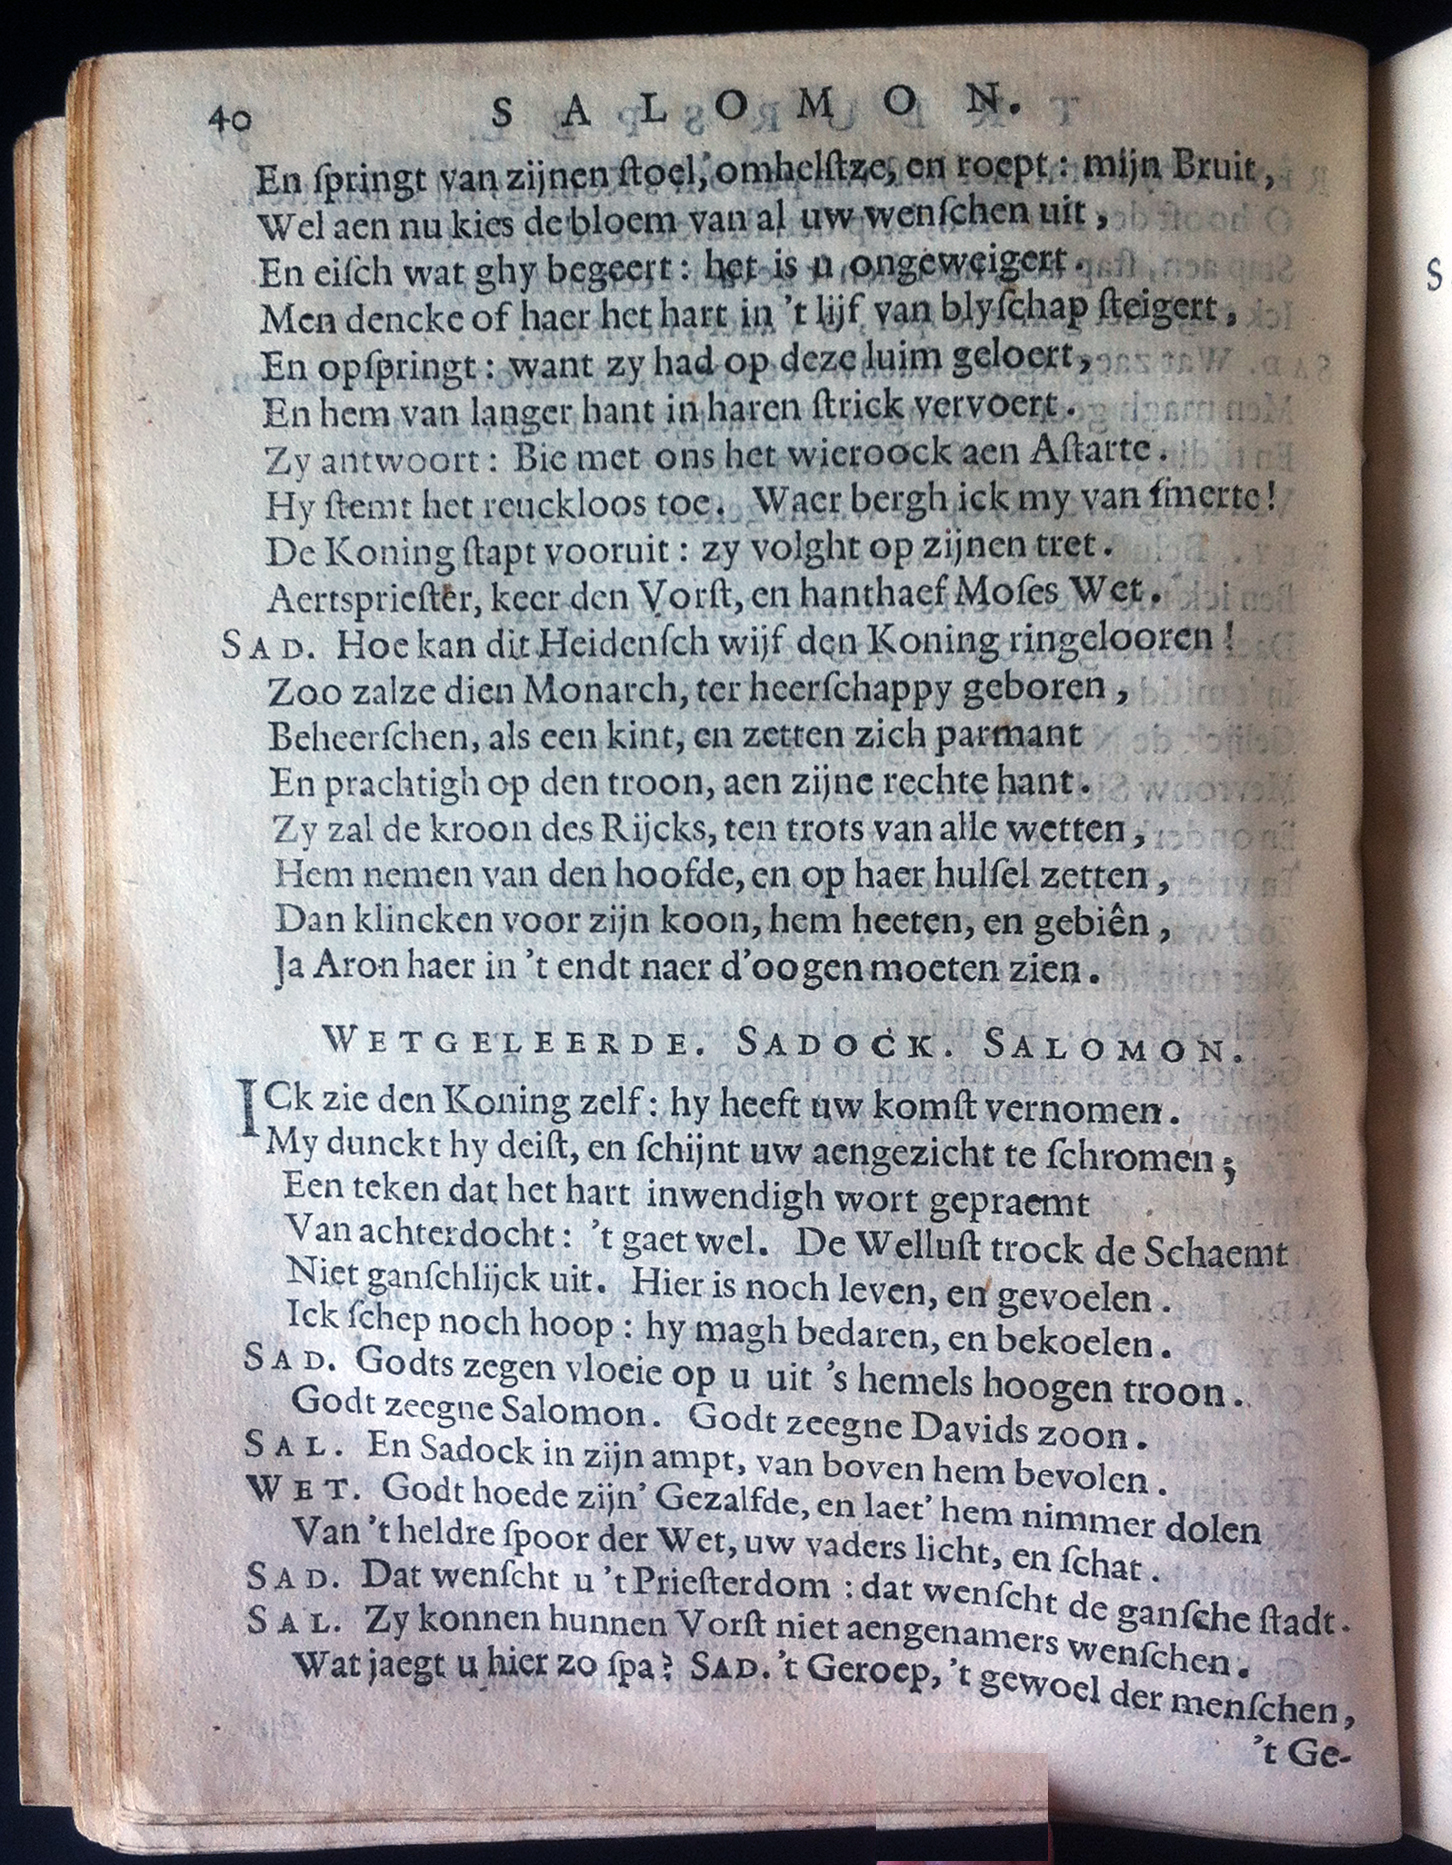 40 SALOMON.
En ſpringt van zijnen ſtoel, omhelſtze, en roept: mijn Bruit,
Wel aen nu kies de bloem van al uw wenſchen uit,
En eiſch wat ghy begeert: het is u ongeweigert.
Men dencke of haer het hart in 't lijf van blyſchap ſteigert,
En opſpringt: want zy had op deze luim geloert,
En hem van langer hant in haren ſtrick vervoert.
Zy antwoort: Bie met ons het wieroock aen Aſtarte.
Hy ſtemt het reuckloos toe. Waer bergh ick my van ſmerte!
De Koning ſtapt vooruit: zy volght op zijnen tret.
Aertsprieſter, keer den Vorſt, en hanthaef Moſes Wet.
SAD. Hoe kan dit Heidenſch wijf den Koning ringelooren!
Zoo zalze dien Monarch, ter heerſchappy geboren,
Beheerſchen, als een kint, en zetten zich parmant
En prachtigh op den troon, aen zijne rechte hant.
Zy zal de kroon des Rijcks, ten trots van alle wetten,
Hem nemen van den hoofde, en op haer hulſel zetten,
Dan klincken voor zijn koon, hem heeten, en gebiên,
Ja Aron haer in 't endt naer d'oogen moeten zien.
WETGELEERDE. SADOCK. SALOMON.
ICk zie den Koning zelf: hy heeft uw komſt vernomen.
My dunckt hy deiſt, en ſchijnt uw aengezicht te ſchromen;
Een teken dat het hart inwendigh wort gepraemt
Van achterdocht: 't gaet wel. De Welluſt trock de Schaemt
Niet ganſchlijck uit. Hier is noch leven, en gevoelen.
Ick ſchep noch hoop: hy magh bedaren, en bekoelen.
SAD. Godts zegen vloeie op u uit 's hemels hoogen troon.
Godt zeegne Salomon. Godt zeegne Davids zoon.
SAL. En Sadock in zijn ampt, van boven hem bevolen.
WET. Godt hoede zijn' Gezalfde, en laet' hem nimmer dolen
Van 't heldre ſpoor der Wet, uw vaders licht, en ſchat.
SAD. Dat wenſcht u 't Prieſterdom: dat wenſcht de ganſche ſtadt.
SAL. Zy konnen hunnen Vorſt niet aengenamers wenſchen.
Wat jaegt u hier zo ſpa? SAD. 't Geroep, 't gewoel der menſchen,
't Ge-
S